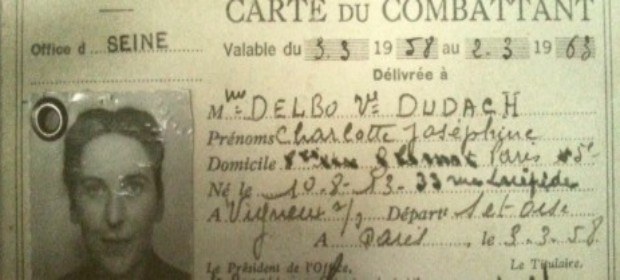 CARTE DU COMBATTANT
Office d SEINE
Valable du 3.3 1958 au 2.3 1963
Délivrée à
Mme DELBO Ve DUDACH
Prénoms Charlotte Joséphine
Domicile Paris 5e
Né le 10-8-13 - 33 rue Lacépède
A Vigneux s/s Départt S et Oise
A Paris , le 3.3.58
Le Président de l'Office, Le Titulaire,